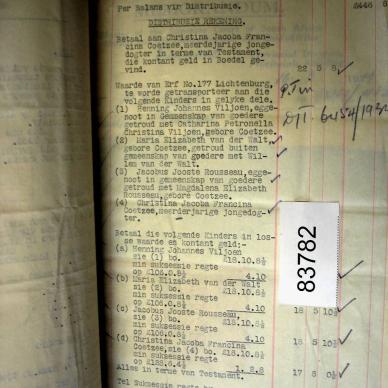 Per Balans vir Distribusie. 8446 8
DISTRIBUSIE REKENING.
Betaal aan Christina Jacoba Fran-
cina Coetzee, meerderjarige jonge-
dogter in terme van Testament,
die kontant geld in Boedel ge-
vind. 22 5 8
Waarde van Erf No.177 Lichtenburg,
te worde getransporteer aan die
volgende Kinders in gelyke dele.
(1) Henning Johannes Viljoen, egge-
noot in gemeenskap van goedere
getroud met Catharina Petronella
Christina Viljoen, gebore Coetzee.
(2) Maria Elizabeth van der Walt,
gebore Coetzee, getroud buiten
gemeenskap van goedere met Wil-
lem van der Walt.
(3) Jacobus Jooste Rousseau, egge-
noot in gemeenskap van goedere
getroud met Magdalena Elizabeth
Rousseau, gebore Coetzee.
(4) Christina Jacoba Francina
Coetzee, meerderjarige jongedog-
ter.
83782
Betaal die volgende Kinders in los-
se waarde en kontant geld;-
(a) Henning Johannes Viljoen
sie (1) bo. £18.10.8½
min suksessie regte
op £106.0.8½ 4.10
(b) Maria Elizabeth van der Walt
sie (2) bo. £18.10.8½
min suksessie regte
op £106.0.8½ 4.10
(c) Jacobus Jooste Rousseau,
sie (3) bo. £18.10.8½
min suksessie regte
op £106.0.8½ 4.10 18 5 10½
(d) Christina Jacoba Francina
Coetzee, sie (4) bo. £18.10.8½
min suksessie regte
op £128.6.4½ 1.2.8 17 8 0½
Alles in terme van Testament.